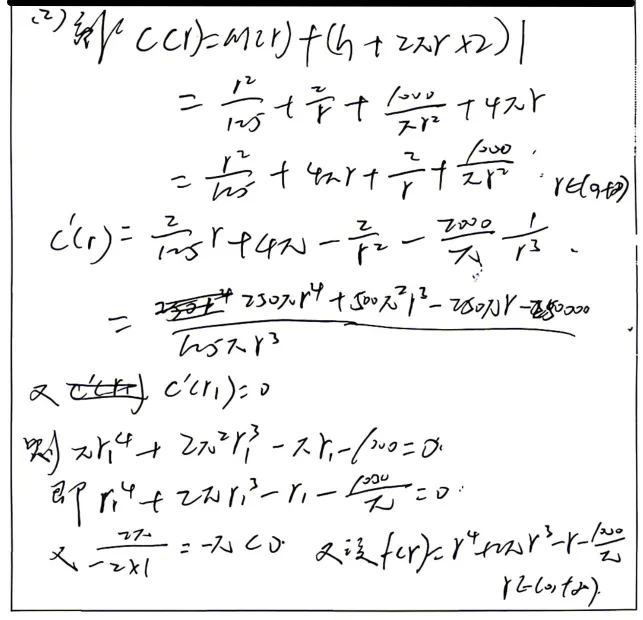 (2) 解 C(r)=m(r)+(h+2πr×2)|
= r²/125 + 2/r + 1000/πr² + 4πr
= r²/125 + 4πr + 2/r + 1000/πr² . r∈(0,+∞)
C'(r) = 2/125 r + 4π - 2/r² - 2000/π 1/r³ .
= 250πr⁴ + 500π²r³ - 250πr - 250000 / 125πr³
又 C'(r₁)=0
则 πr₁⁴ + 2π²r₁³ - πr₁ - 1000=0.
即 r₁⁴ + 2πr₁³ - r₁ - 1000/π = 0.
又 2π/-2×1 = -π<0. 又设 f(r)=r⁴+2πr³-r-1000/π
r∈(0,+∞).